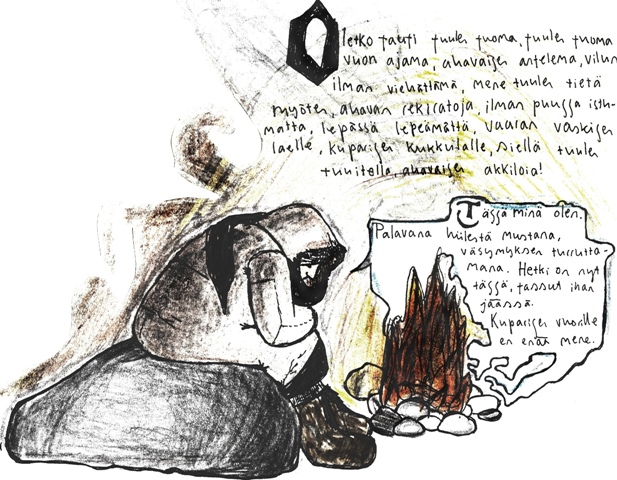 Oletko tauti tuulen tuoma, tuulen tuoma
vuon ajama, ahavaisen antelema, vilun
ilman viehättämä, mene tuulen tietä
myöten, ahavan rekiratoja, ilman puussa istu-
matta, lepässä lepeämättä, vaaran vaskisen
laelle, kuparisen kukkulalle, siellä tuulen
tuuitella, ahavaisen akkiloia!
Tässä minä olen.
Palavana hiilestä mustana,
väsymyksen turrutta-
mana. Hetki on nyt
tässä, tassut ihan
jäässä.
Kuparisen vuorille
en enää mene.